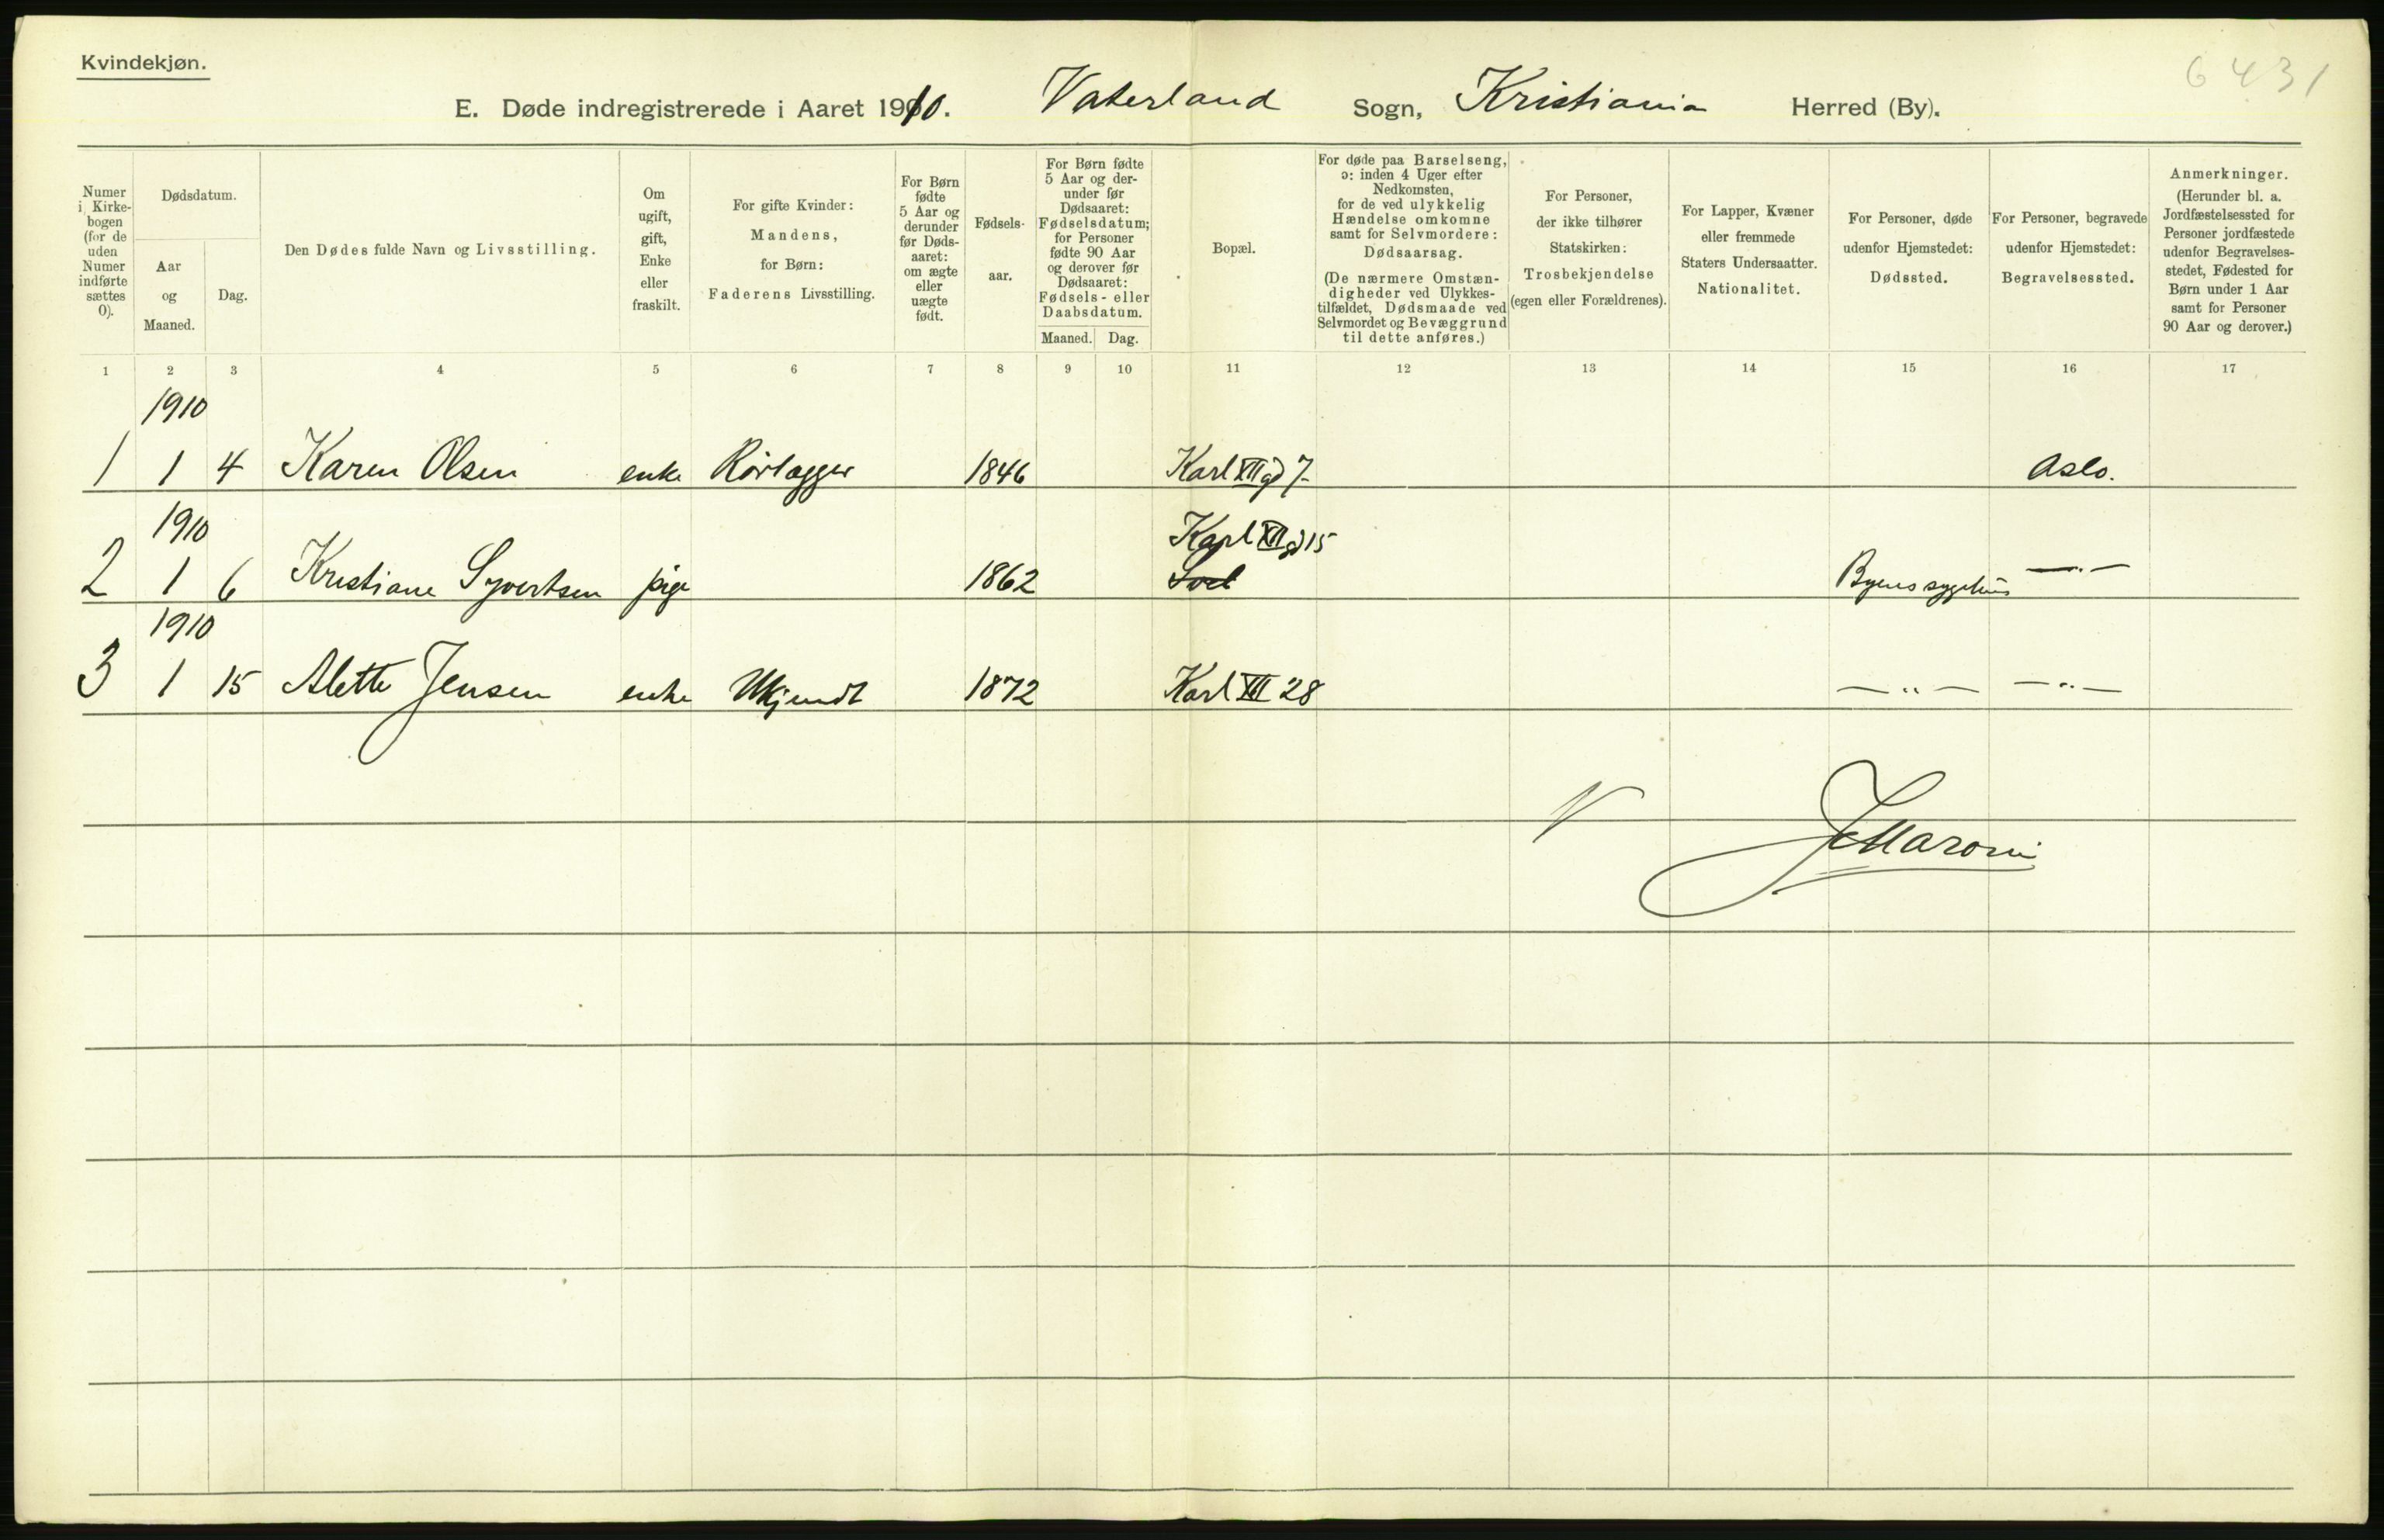 Kvindekjøn.
6431
E. Døde indregistrerede i Aaret 1910. Vaterland Sogn, Kristiania Herred (By).
Numer i Kirkebogen (for de uden Numer indførte sættes 0).
Dødsdatum.
Aar og Maaned.
Dag.
Den Dødes fulde Navn og Livsstilling.
Om ugift, gift, Enke eller fraskilt.
For gifte Kvinder: Mandens, for Børn: Faderens Livsstilling.
For Børn fødte 5 Aar og derunder før Dødsaaret: om ægte eller uægte født.
Fødselsaar.
For Børn fødte 5 Aar og derunder før Dødsaaret: Fødselsdatum; for Personer fødte 90 Aar og derover før Dødsaaret: Fødsels- eller Daabsdatum.
Maaned. Dag.
Bopæl.
For døde paa Barselseng, ɔ: inden 4 Uger efter Nedkomsten, for de ved ulykkelig Hændelse omkomne samt for Selvmordere: Dødsaarsag. (De nærmere Omstændigheder ved Ulykkestilfældet, Dødsmaade ved Selvmordet og Bevæggrund til dette anføres.)
For Personer, der ikke tilhører Statskirken: Trosbekjendelse (egen eller Forældrenes).
For Lapper, Kvæner eller fremmede Staters Undersaatter. Nationalitet.
For Personer, døde udenfor Hjemstedet: Dødssted.
For Personer, begravede udenfor Hjemstedet: Begravelsessted.
Anmerkninger. (Herunder bl. a. Jordfæstelsessted for Personer jordfæstede udenfor Begravelsesstedet, Fødested for Børn under 1 Aar samt for Personer 90 Aar og derover.)
1 2 3 4 5 6 7 8 9 10 11 12 13 14 15 16 17
1910
1 1 4 Karen Olsen enke Rørlægger 1846 Karl XII gd 7 Oslo.
1910 Karl XII gd 15
2 1 6 Kristiane Syvertsen pige 1862 Byens sygehus — " —
1910
3 1 15 Alette Jensen enke Ukjendt 1872 Karl XII 28 — " — — " —